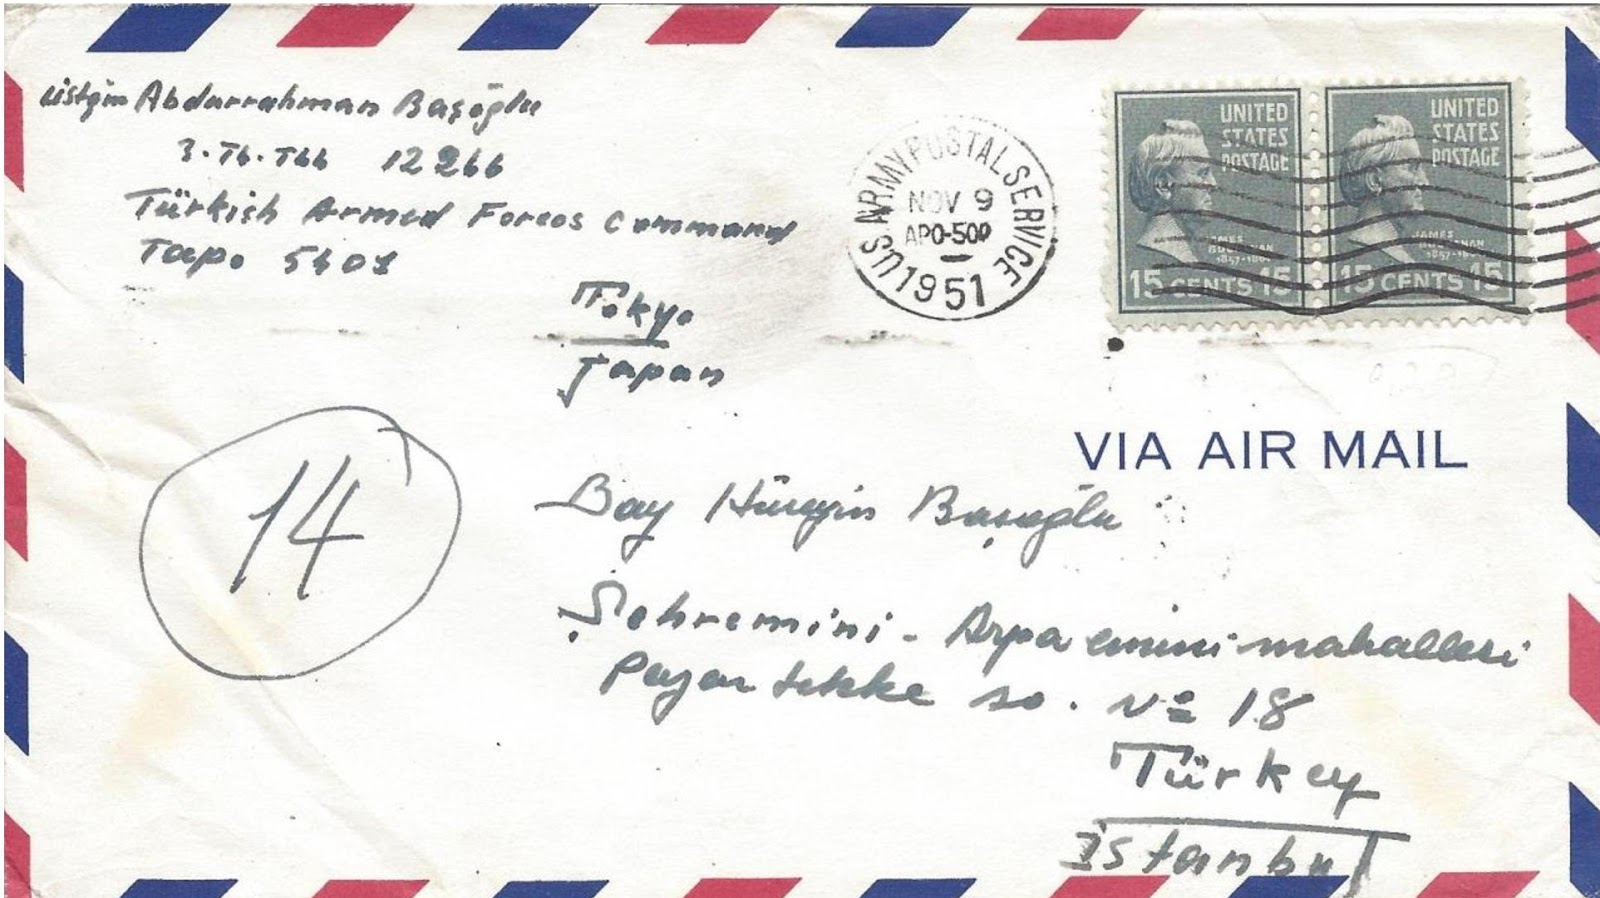 üstğm Abdurrahman Başoğlu
3. Tb. Tbb 12266
Türkish Armed Forces Command
Tapo 5401
Tokyo
Japan
U.S. ARMY POSTAL SERVICE
NOV 9
APO-500
1951
UNITED
STATES
POSTAGE
JAMES
BUCHANAN
1857-1861
15 CENTS 15
UNITED
STATES
POSTAGE
JAMES
BUCHANAN
1857-1861
15 CENTS 15
VIA AIR MAIL
14
Bay Hüseyin Başoğlu
Şehremini - Arpa emini mahallesi
tekke so. No 18
Türkey
İstanbul